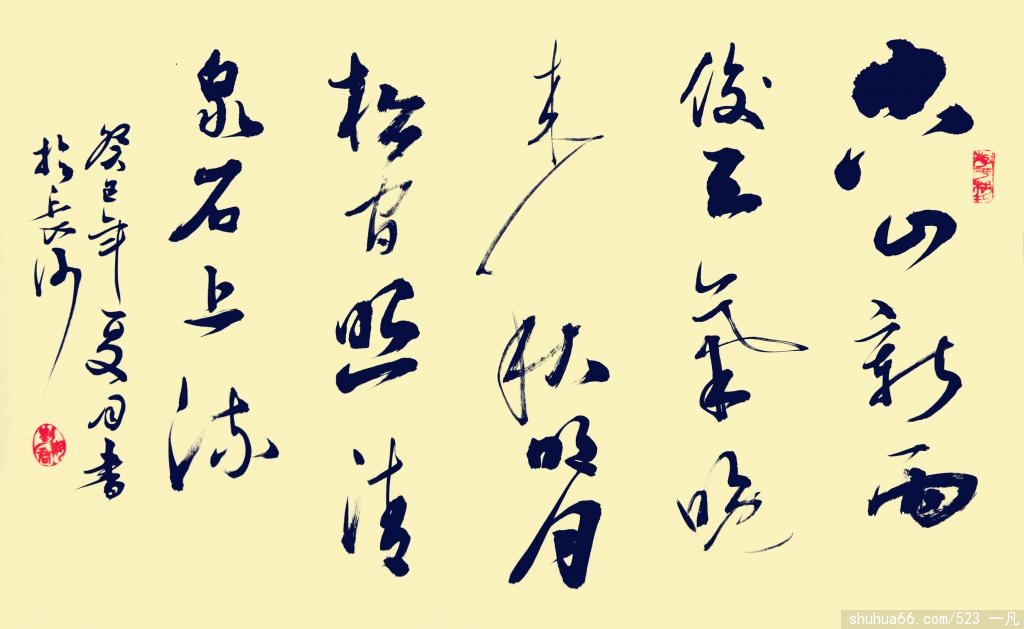 空山新雨
後天氣晚
来秋明月
松間照清
泉石上流
癸巳年夏月書
於長沙
shuhua66.com/523 一凡